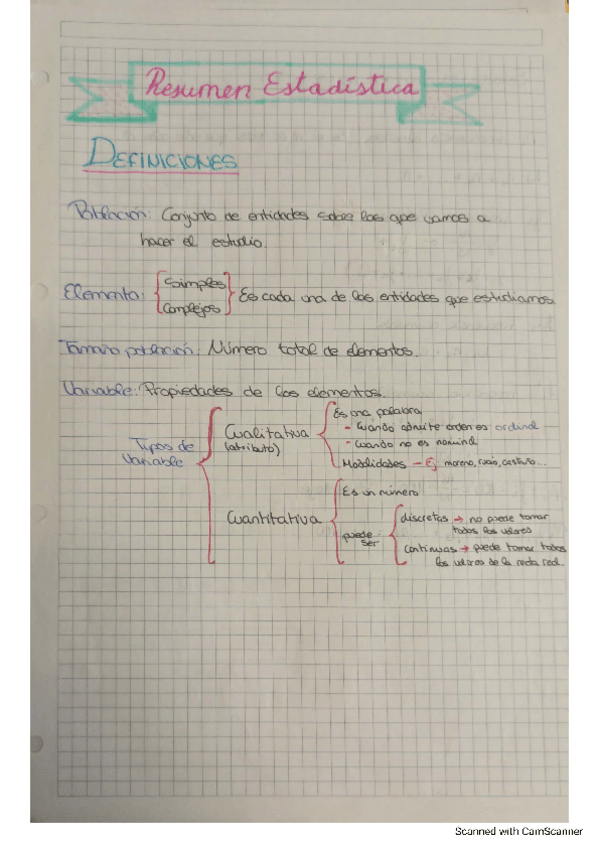 Resumen Estadística
DEFINICIONES
Población: Conjunto de entidades sobre las que vamos a
hacer el estudio.
Elemento: {Simples
Complejos} Es cada una de las entidades que estudiamos.
Tamaño población: Número total de elementos.
Variable: Propiedades de los elementos.
Tipos de
Variable
Cualitativa
(atributo)
Es una palabra
- Cuando admite orden es ordinal
- Cuando no es nominal
Modalidades - Ej moreno, rubio, castaño...
Cuantitativa
Es un número
puede
ser
discretas → no puede tomar
todos los valores
continuas → puede tomar todos
los valores de la recta real.
Scanned with CamScanner